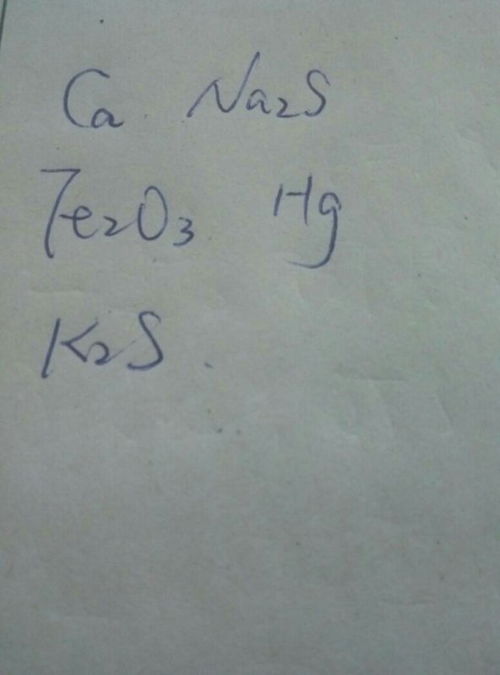 Ca Na₂S
Fe₂O₃ Hg
K₂S